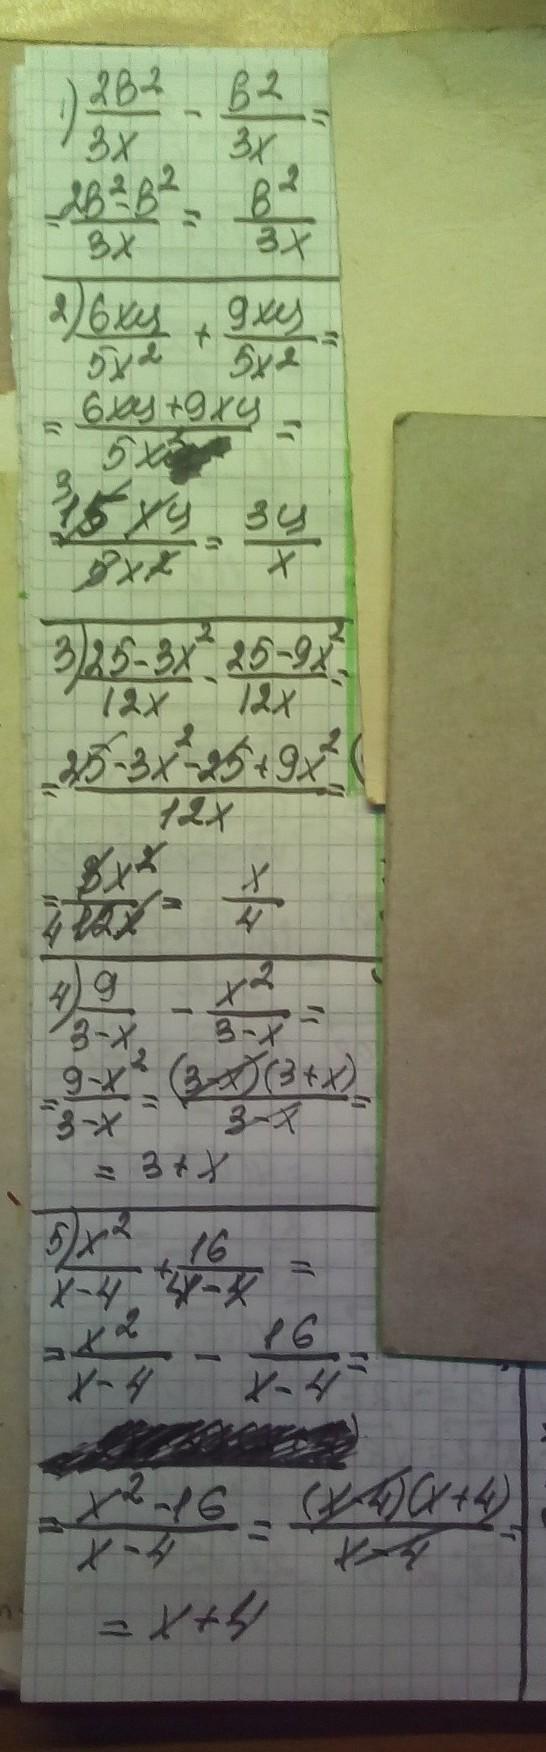 1) 2в²/3x - в²/3x =
= 2в²-в²/3x = в²/3x
2) 6xy/5x² + 9xy/5x² =
= 6xy+9xy/5x² =
= ³15xy/5x² = 3y/x
3) 25-3x²/12x - 25-9x²/12x =
= 25-3x²-25+9x²/12x =
= x²/4 12x = x/4
4) 9/3-x - x²/3-x =
= 9-x²/3-x = (3-x)(3+x)/3-x =
= 3+x
5) x²/x-4 + 16/4-x =
= x²/x-4 - 16/x-4 =
= x²-16/x-4 = (x-4)(x+4)/x-4 =
= x+4